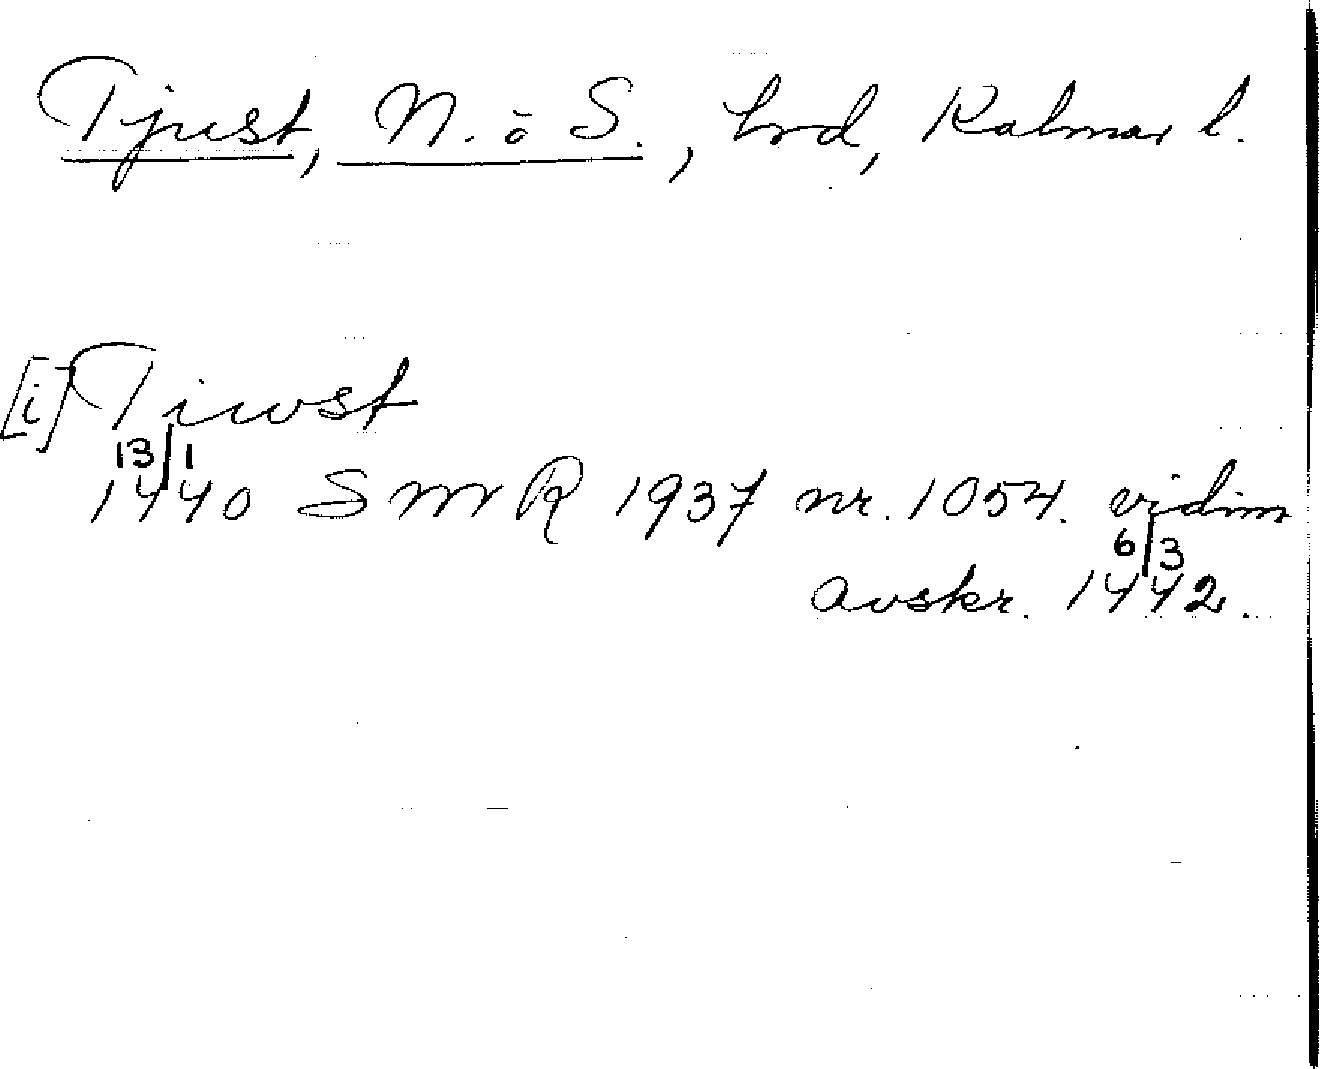 Tjust, N. ö S., hrd, Kalmar l.
[i] Tiwst
13/1
1440 SMR 1937 nr. 1054. vidim
6/3
avskr. 1442.